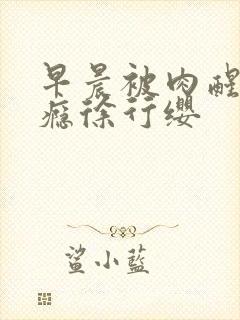 早晨被肉醒
瘾徐行缨
鲨小蓝